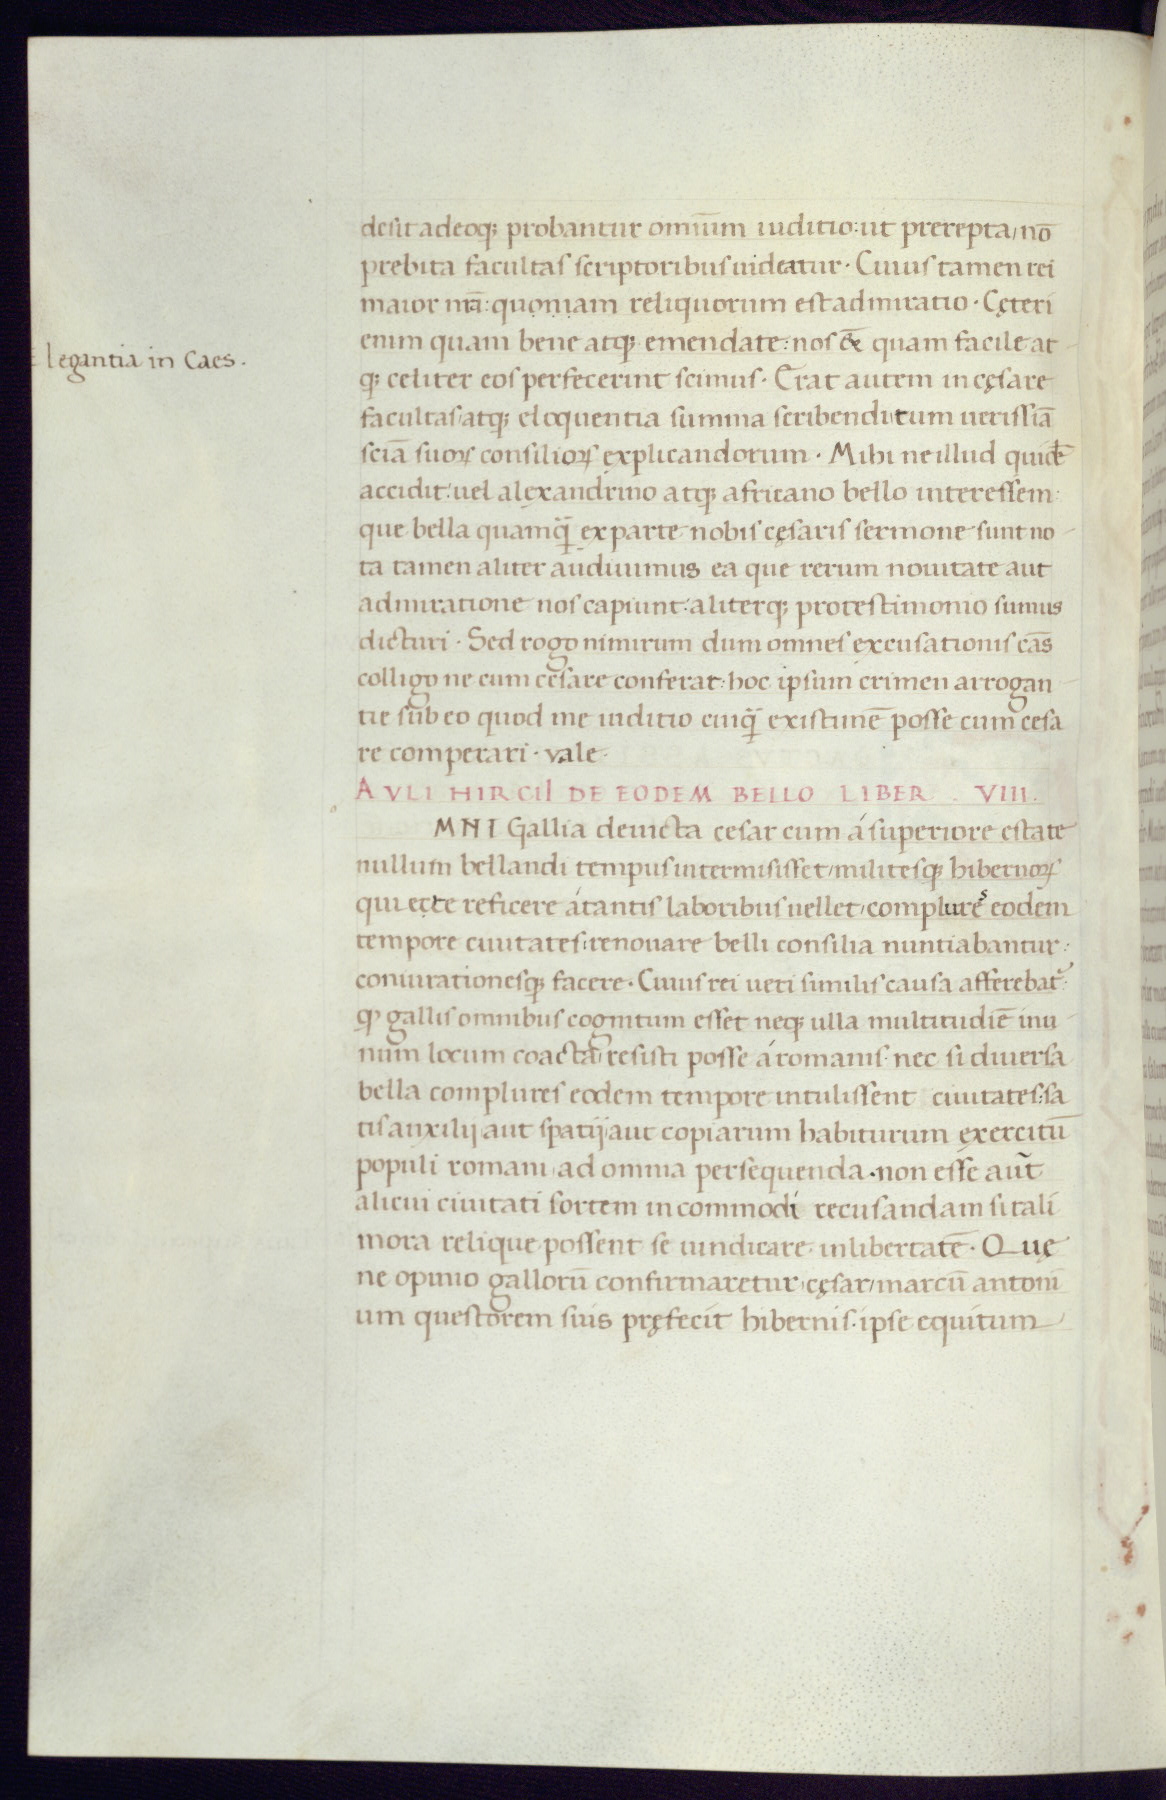 desit adeoq; probantur omniū iuditio: ut prerepta/ nō
prebita facultas scriptoribus uideatur · Cuius tamen rei
maior nr̄a: quoniam reliquorum est admiratio · Cęteri
enim quam bene atq; emendate: nos &̄ quam facile at
Elegantia in Caes.
q; celiter eos perfecerint scimus · Erat autem in cęsare
facultas atq; eloquentia summa scribendi tum uerissiā
sciā suoꝝ consilioꝝ explicandorum · Mihi ne illud quidē
accidit: uel alexandrino atq; africano bello interessem:
que bella quamq̄ ex parte nobis cęsaris sermone sunt no
ta tamen aliter audiuimus ea que rerum nouitate aut
admiratione nos capiunt: aliterq; pro testimonio sumus
dicturi · Sed rogo nimirum dum omnes excusationis cās
colligo ne cum cesare conferar: hoc ipsum crimen arrogan
tie sub eo quod me iuditio cuiq̄ existimē posse cum cesa
re comperari · vale ·
AVLI HIRCII DE EODEM BELLO LIBER . VIII.
MNI Gallia deuicta cesar cum á superiore estate
nullum bellandi tempus intermisisset/ militesq; hibernoꝝ
qui ecte reficere á tantis laboribus uellet/ complures eodem
tempore ciuitates: renouare belli consilia nuntiabantur:
coniurationesq; facere · Cuius rei ueri similis causa afferebat᷑:
ꝙ gallis omnibus cognitum esset neq; ulla multitudiē in u
num locum coacta/ resisti posse á romanis · nec si diuersa
bella complures eodem tempore intulissent ciuitates: sa
tis auxilij aut spatij aut copiarum habiturum exercitū
populi romani/ ad omnia persequenda · non esse aūt
alicui ciuitati sortem incommodi recusandam si tali
mora relique possent se uindicare in libertatē · Quę
ne opinio gallorū confirmaretur/ cęsar/ marcū antoni
um questorem suis pręfecit hibernis · ipse equitum